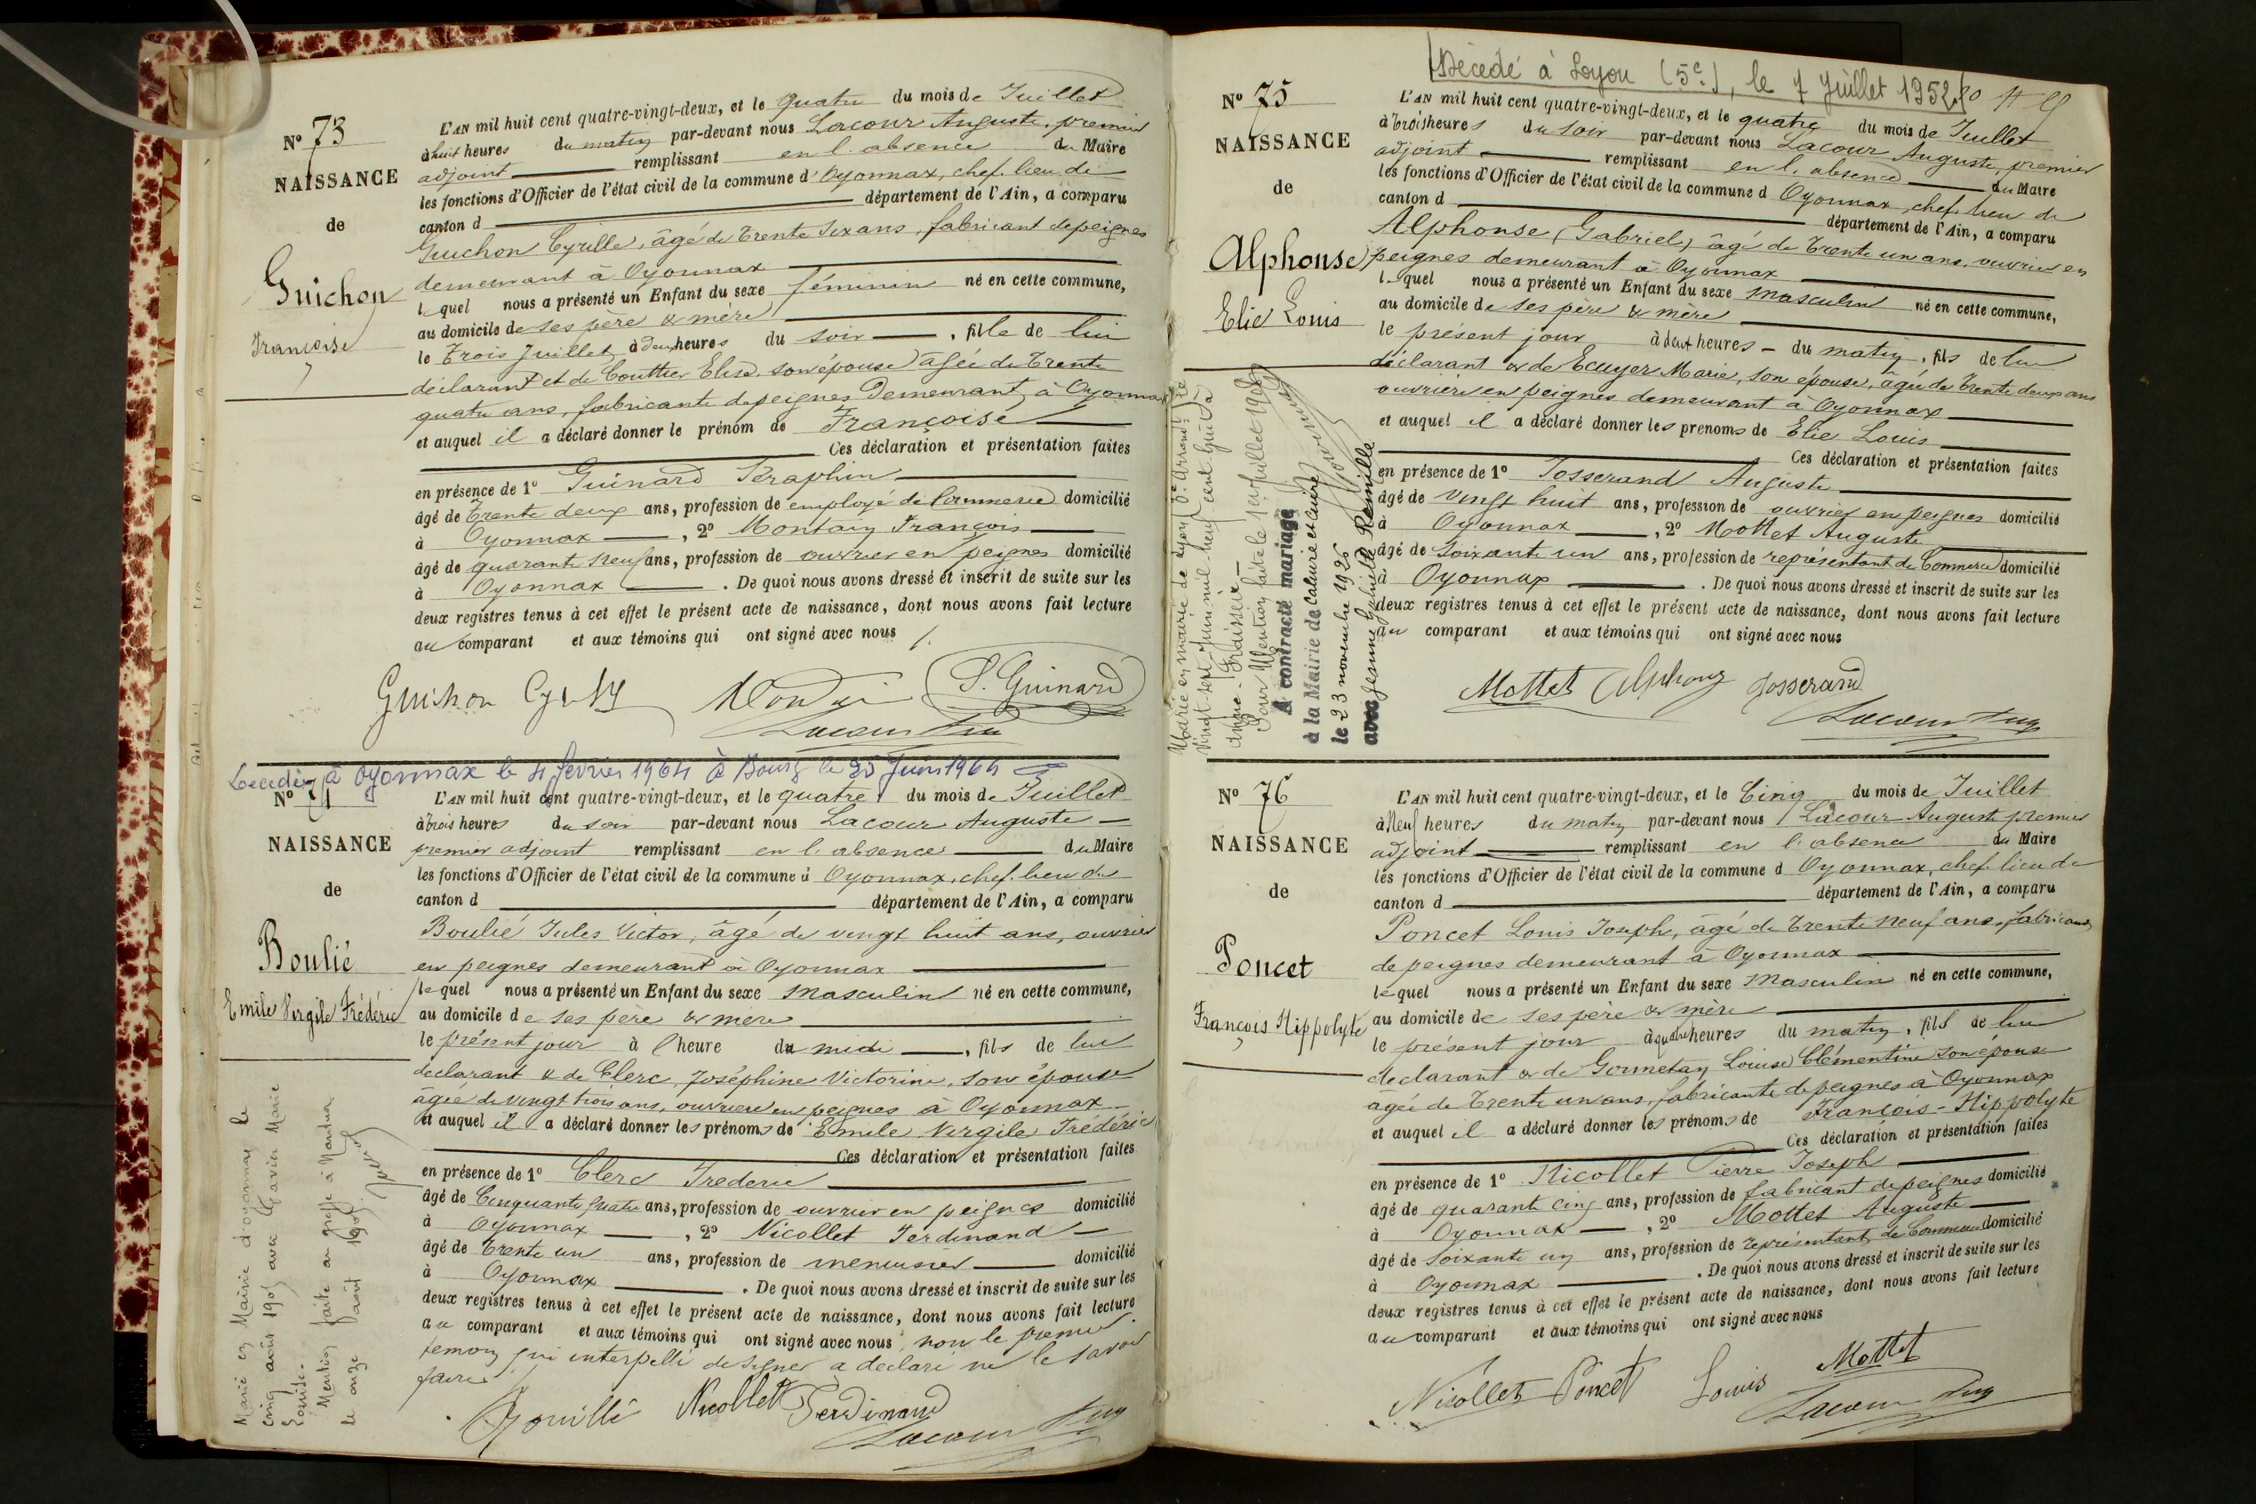 N° 73
NAISSANCE
de
Guichon
Françoise
L'AN mil huit cent quatre-vingt-deux, et le quatre du mois de Juillet
à huit heures du matin par-devant nous Lacour Auguste, premier
adjoint remplissant en l'absence du Maire
les fonctions d'Officier de l'état civil de la commune d'Oyonnax, chef-lieu de
canton d département de l'Ain, a comparu
Guichon Cyrille, âgé de trente six ans, fabricant de peignes
demeurant à Oyonnax
lequel nous a présenté un Enfant du sexe féminin né en cette commune,
au domicile de ses père & mère
le trois Juillet à deux heures du soir, fille de lui
déclarant et de Couttier Elise son épouse âgée de trente
quatre ans, fabricante de peignes demeurant à Oyonnax
et auquel il a déclaré donner le prénom de Françoise
Ces déclaration et présentation faites
en présence de 1° Guinard Séraphin
âgé de trente deux ans, profession de employé de Commerce domicilié
à Oyonnax, 2° Montaiy François
âgé de quarante neuf ans, profession de ouvrier en peignes domicilié
à Oyonnax. De quoi nous avons dressé et inscrit de suite sur les
deux registres tenus à cet effet le présent acte de naissance, dont nous avons fait lecture
au comparant et aux témoins qui ont signé avec nous
Guichon Cyrille S. Guinard
Décédée à Oyonnax le 4 février 1964 à Bourg le 25 Juin 1964
N° 74
NAISSANCE
de
Boulié
Emile Virgile Frédéric
L'AN mil huit cent quatre-vingt-deux, et le quatre du mois de Juillet
à trois heures du soir par-devant nous Lacour Auguste
premier adjoint remplissant en l'absence du Maire
les fonctions d'Officier de l'état civil de la commune d Oyonnax, chef-lieu de
canton d département de l'Ain, a comparu
Boulié Jules Victor, âgé de vingt huit ans, ouvrier
en peignes demeurant à Oyonnax
lequel nous a présenté un Enfant du sexe masculin né en cette commune,
au domicile de ses père & mère
le présent jour à l'heure du midi, fils de lui
déclarant & de Clerc Joséphine Victorine, son épouse
âgée de vingt trois ans, ouvrière en peignes à Oyonnax
et auquel il a déclaré donner les prénoms de Emile Virgile Frédéric
Ces déclaration et présentation faites
en présence de 1° Clerc Frédéric
âgé de Cinquante quatre ans, profession de ouvrier en peignes domicilié
à Oyonnax, 2° Nicollet Ferdinand
âgé de trente un ans, profession de menuisier domicilié
à Oyonnax. De quoi nous avons dressé et inscrit de suite sur les
deux registres tenus à cet effet le présent acte de naissance, dont nous avons fait lecture
au comparant et aux témoins qui ont signé avec nous, non le premier
témoin qui interpellé de signer a déclaré ne le savoir
faire
Marié en Mairie d'Oyonnax le
cinq août 1905 avec Marie
Louise.
Mention faite au greffe à Nantua
le onze août 1905
Nicollet Ferdinand
Décédé à Lyon (5e), le 7 Juillet 1952
N° 75
NAISSANCE
de
Alphonse
Elie Louis
L'AN mil huit cent quatre-vingt-deux, et le quatre du mois de Juillet
à trois heures du soir par-devant nous Lacour Auguste, premier
adjoint remplissant en l'absence du Maire
les fonctions d'Officier de l'état civil de la commune d Oyonnax, chef-lieu de
canton d département de l'Ain, a comparu
Alphonse (Gabriel) âgé de trente un ans, ouvrier en
peignes demeurant à Oyonnax
lequel nous a présenté un Enfant du sexe masculin né en cette commune,
au domicile de ses père & mère
le présent jour à deux heures du matin, fils de lui
déclarant & de Ecuyer Marie, son épouse, âgée de trente deux ans
ouvrière en peignes demeurant à Oyonnax
et auquel il a déclaré donner les prénoms de Elie Louis
Ces déclaration et présentation faites
en présence de 1° Josserand Auguste
âgé de vingt huit ans, profession de ouvrier en peignes domicilié
à Oyonnax, 2° Mottet Auguste
âgé de Soixante un ans, profession de représentant de Commerce domicilié
à Oyonnax. De quoi nous avons dressé et inscrit de suite sur les
deux registres tenus à cet effet le présent acte de naissance, dont nous avons fait lecture
au comparant et aux témoins qui ont signé avec nous
Marié en mairie de Lyon
vingt-sept Juin mil neuf cent
Pour Mention faite le
A contracté mariage
à la Mairie de Caluire et Cuire
le 23 novembre 1926
avec Jeanne Gabrielle
Mottet Alphonse Josserand
N° 76
NAISSANCE
de
Poncet
François Hippolyte
L'AN mil huit cent quatre-vingt-deux, et le Cinq du mois de Juillet
à Neuf heures du matin par-devant nous Lacour Auguste premier
adjoint remplissant en l'absence du Maire
les fonctions d'Officier de l'état civil de la commune d Oyonnax, chef-lieu de
canton d département de l'Ain, a comparu
Poncet Louis Joseph, âgé de trente neuf ans, fabricant
de peignes demeurant à Oyonnax
lequel nous a présenté un Enfant du sexe Masculin né en cette commune,
au domicile de ses père & mère
le présent jour à quatre heures du matin, fils de lui
déclarant & de Gonnetan Louise Clémentine son épouse
âgée de trente un ans, fabricante de peignes à Oyonnax
et auquel il a déclaré donner les prénoms de François-Hippolyte
Ces déclaration et présentation faites
en présence de 1° Nicollet Pierre Joseph
âgé de quarante cinq ans, profession de fabricant de peignes domicilié
à Oyonnax, 2° Mottet Auguste
âgé de soixante un ans, profession de représentant de Commerce domicilié
à Oyonnax. De quoi nous avons dressé et inscrit de suite sur les
deux registres tenus à cet effet le présent acte de naissance, dont nous avons fait lecture
au comparant et aux témoins qui ont signé avec nous
Nicollet Poncet Louis Mottet